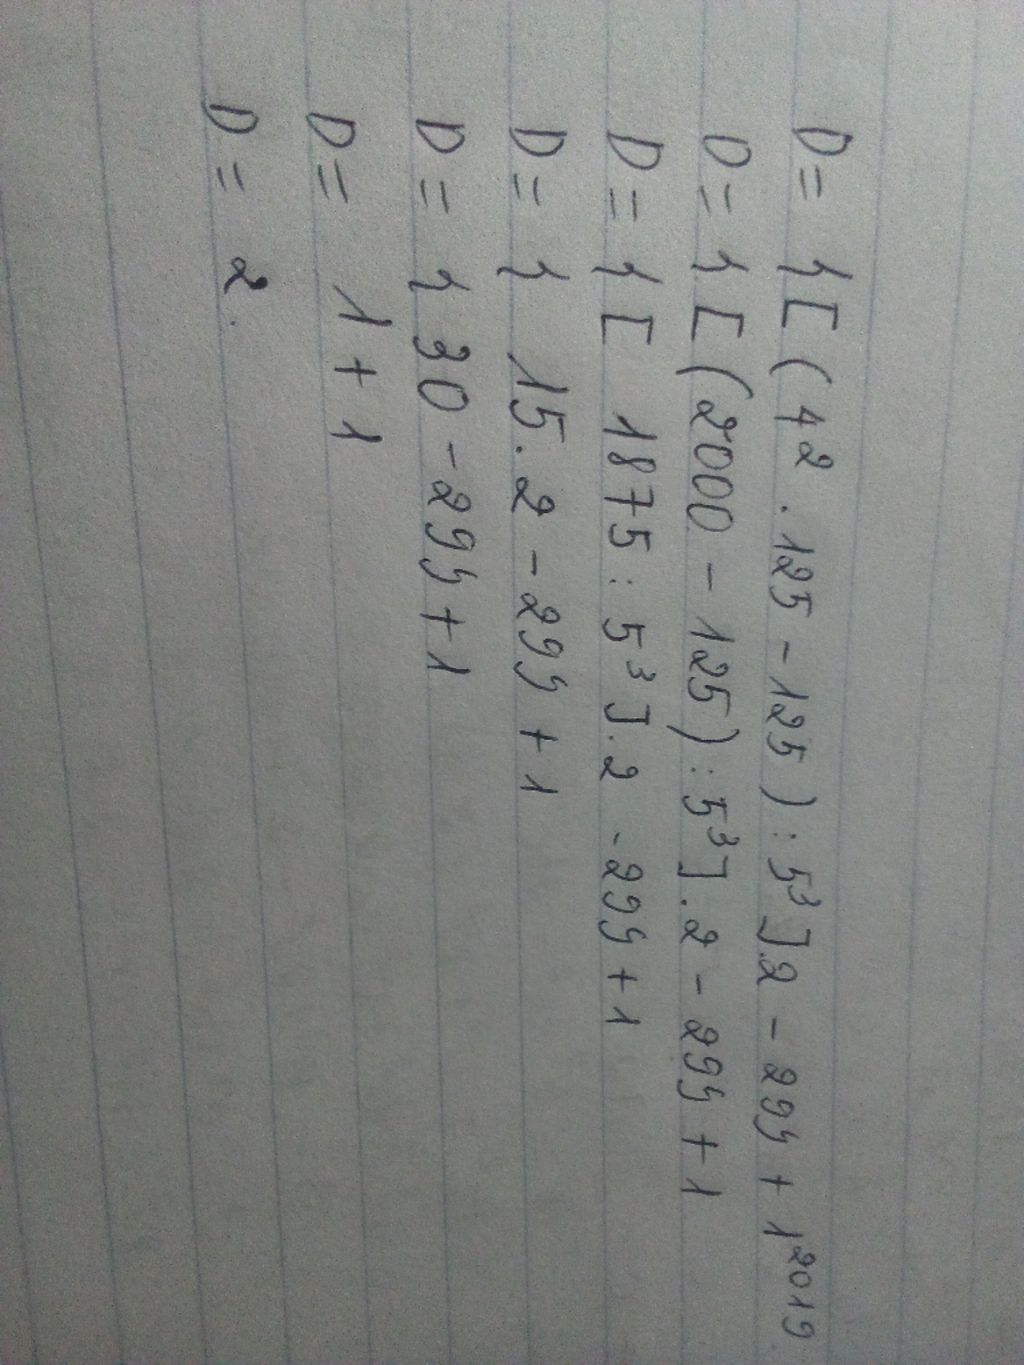 D = {[(4² . 125 - 125) : 5³].2 - 29} + 1²⁰¹⁹
D = {[(2000 - 125) : 5³].2 - 29} + 1
D = {[ 1875 : 5³].2 - 29} + 1
D = { 15.2 - 29} + 1
D = {30 - 29} + 1
D = 1 + 1
D = 2.